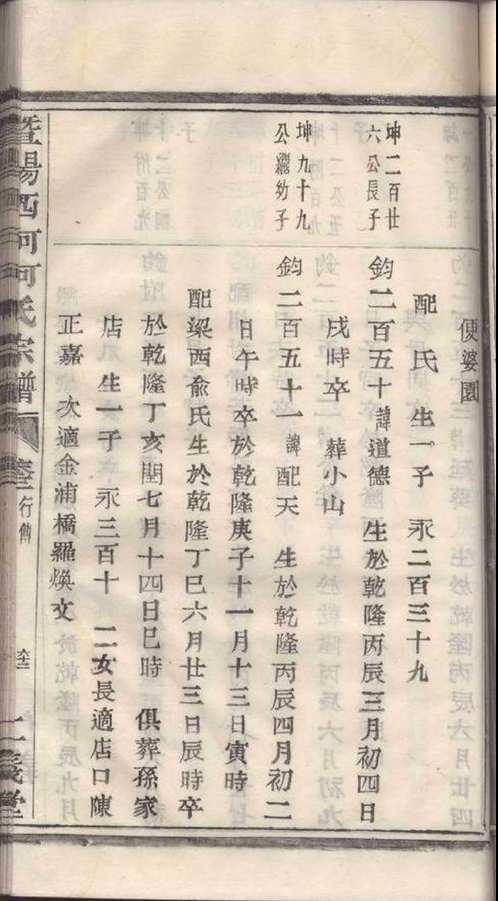 便婆園
配 氏 生一子 永二百三十九
坤二百廿
六公長子
鈞二百五十 諱道德 生於乾隆丙辰三月初四日
戌時卒 葬小山
坤九十九
公繼幼子
鈞二百五十一 諱配天 生於乾隆丙辰四月初二
日午時卒於乾隆庚子十一月十三日寅時
配梁西俞氏生於乾隆丁巳六月廿三日辰時卒
於乾隆丁亥閏七月十四日巳時 俱葬孫家
店 生一子 永三百十 二女長適店口陳
正嘉 次適金浦橋羅煥文
暨陽西河何氏宗譜
行傳